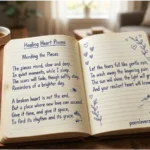 Healing Heart Poems
Mending the Pieces
The pieces mend, slow and deep,
In quiet moments, while I sleep.
The scars will fade, though softly stay,
Reminders of a brighter day.
A broken heart is not the end,
But a place where new love can
Give it time, and give it space,
To find its rhythm and its grace.
Let the tears fall like gentle rain,
To wash away the lingering pain.
The sun will shine, the light will
And your resilient heart will